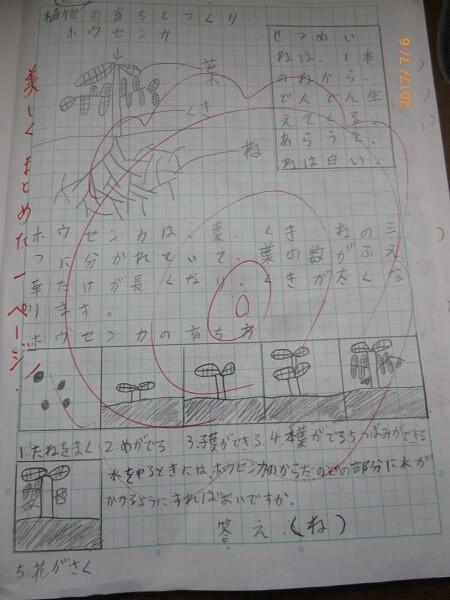 植物の育ちとつくり
ホウセンカ
葉
くき
ね
せつめい
ねは、1本
のねから、
どんどん生
えてくる。
あらうと、
ねは白い。
2017/7/6
美しくまとめた一ページ
ホウセンカは、葉、くき、ねの三
つに分かれていて、葉の数がふえ、
草たけが長くなり、くきが太くな
ります。
ホウセンカの育ち方
1.たねをまく
2.めがでる
3.子葉ができる
4.本葉がでる
5.つぼみができる
水をやるときにはホウセンカのからだのどの部分に水が
かかるようにすればよいですか。
答え.(ね)
5.花がさく